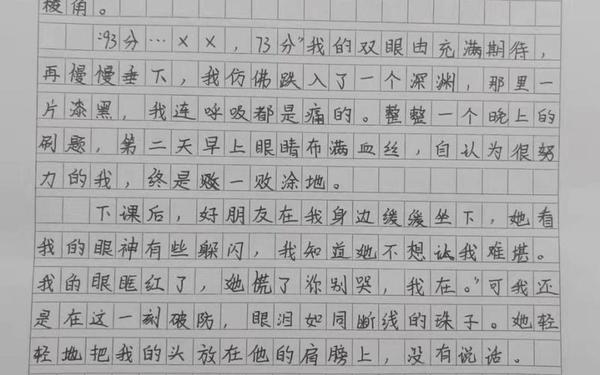 棱角。
“93分…××，73分”我的双眼由充满期待，
再慢慢垂下，我仿佛跌入了一个深渊，那里一
片漆黑，我连呼吸都是痛的。整整一个晚上的
刷题，第二天早上眼睛布满血丝，自认为很努
力的我，终是败一败涂地。
下课后，好朋友在我身边缓缓坐下，她看
我的眼神有些躲闪，我知道她不想让我难堪。
我的眼眶红了，她慌了“你别哭，我在。”可我还
是在这一刻破防，眼泪如同断线的珠子。她轻
轻地把我的头放在他的肩膀上，没有说话。